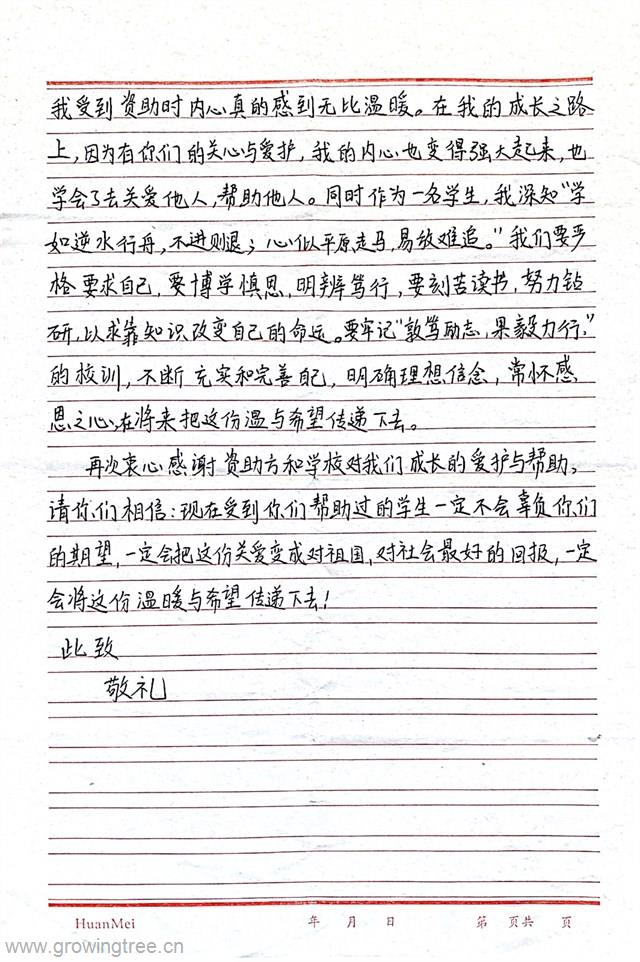 我受到资助时内心真的感到无比温暖。在我的成长之路
上,因为有你们的关心与爱护,我的内心也变得强大起来,也
学会了去关爱他人,帮助他人。同时作为一名学生,我深知“学
如逆水行舟,不进则退;心似平原走马,易放难追。”我们要严
格要求自己,要博学慎思,明辨笃行,要刻苦读书,努力钻
研,以求靠知识改变自己的命运。要牢记“敦笃励志,果毅力行”
的校训,不断充实和完善自己,明确理想信念,常怀感
恩之心,在将来把这份温与希望传递下去。
再次衷心感谢资助方和学校对我们成长的爱护与帮助。
请你们相信:现在受到你们帮助过的学生一定不会辜负你们
的期望,一定会把这份关爱变成对祖国,对社会最好的回报,一定
会将这份温暖与希望传递下去!
此致
敬礼
HuanMei 年 月 日 第 页共 页
www.growingtree.cn